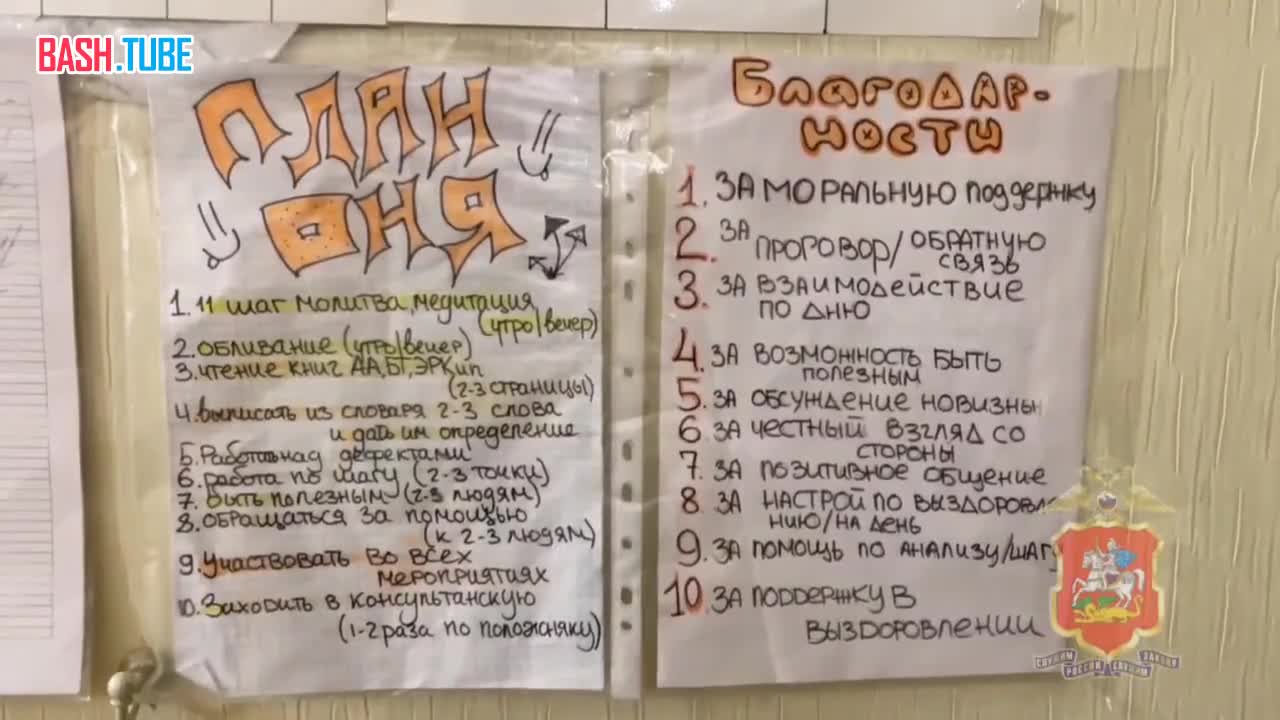 BASH.TUBE
ПЛАН
ДНЯ
1. 11 шаг молитва, медитация
(утро/вечер)
2. обливание (утро/вечер)
3. чтение книг АА, БТ, ЭРКип
(2-3 страницы)
4. выписать из словаря 2-3 слова
и дать им определение
5. Работа над дефектами
6. работа по шагу (2-3 точки)
7. быть полезным (2-3 людям)
8. обращаться за помощью
(к 2-3 людям)
9. Участвовать во всех
мероприятиях
10. Заходить в консультанскую
(1-2 раза по положняку)
БЛАГОДАР-
НОСТИ
1. ЗА МОРАЛЬНУЮ поддержку
2. ЗА ПРОГОВОР/ОБРАТНУЮ
СВЯЗЬ
3. ЗА ВЗАИМОДЕЙСТВИЕ
ПО ДНЮ
4. ЗА ВОЗМОЖНОСТЬ БЫТЬ
ПОЛЕЗНЫМ
5. ЗА ОБСУЖДЕНИЕ НОВИЗНЫ
6. ЗА ЧЕСТНЫЙ ВЗГЛЯД СО
СТОРОНЫ
7. ЗА ПОЗИТИВНОЕ ОБЩЕНИЕ
8. ЗА НАСТРОЙ ПО ВЫЗДОРОВЛЕ
НИЮ/НА ДЕНЬ
9. ЗА ПОМОЩЬ ПО АНАЛИЗУ/ШАГУ
10. ЗА ПОДДЕРЖКУ В
ВЫЗДОРОВЛЕНИИ
СЛУЖИМ РОССИИ СЛУЖИМ ЗАКОНУ